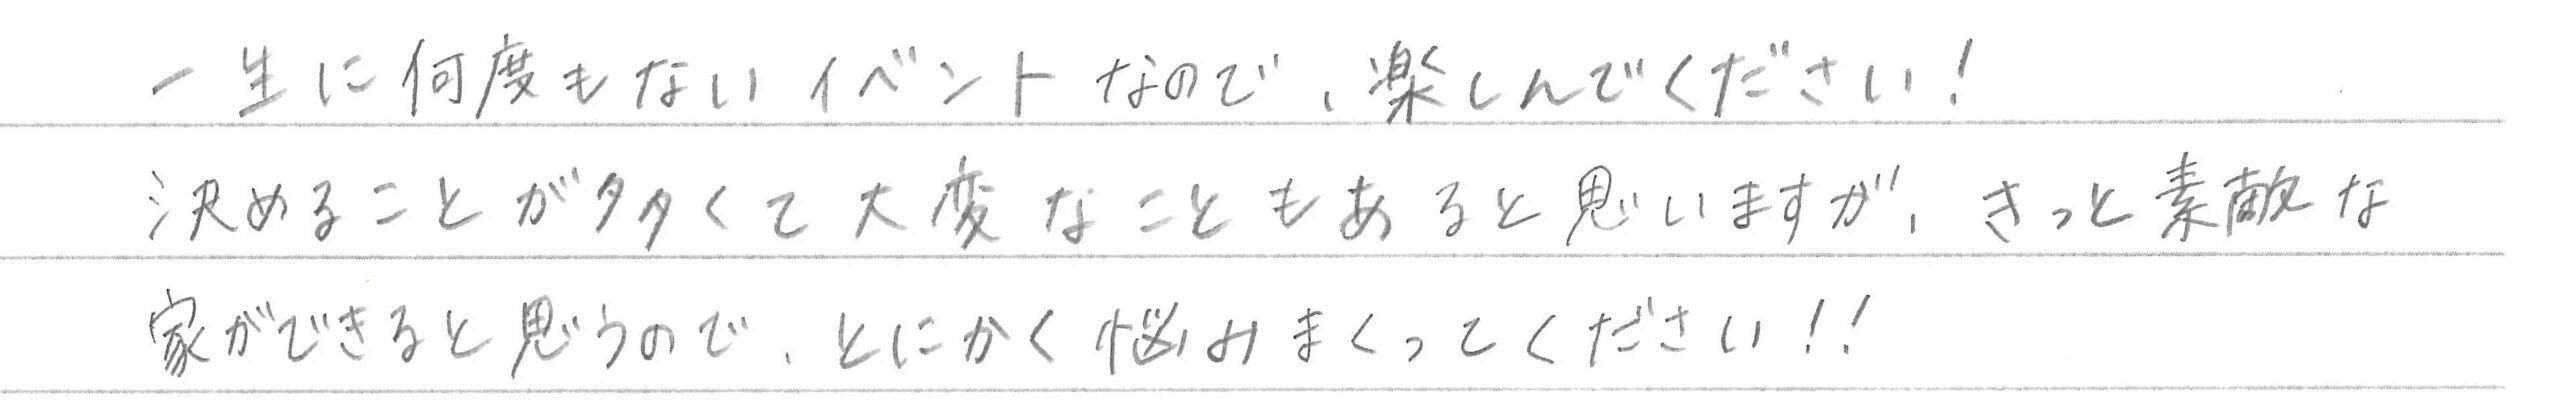 一生に何度もないイベントなので、楽しんでください!
決めることが多くて大変なこともあると思いますが、きっと素敵な
家ができると思うので、とにかく悩みまくってください!!